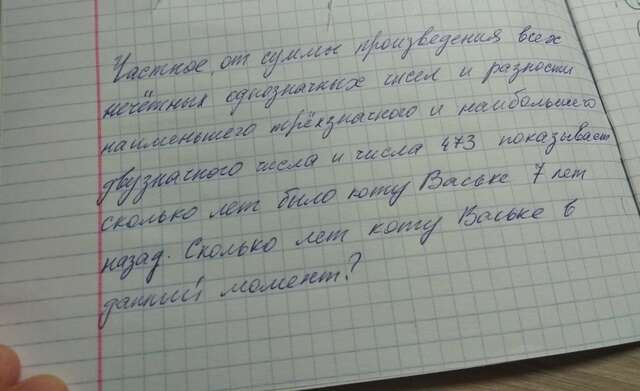 Частное от суммы произведения всех
нечётных однозначных чисел и разности
наименьшего трёхзначного и наибольшего
двузначного числа и числа 473 показывает
сколько лет было коту Ваське 7 лет
назад. Сколько лет коту Ваське в
данный момент?